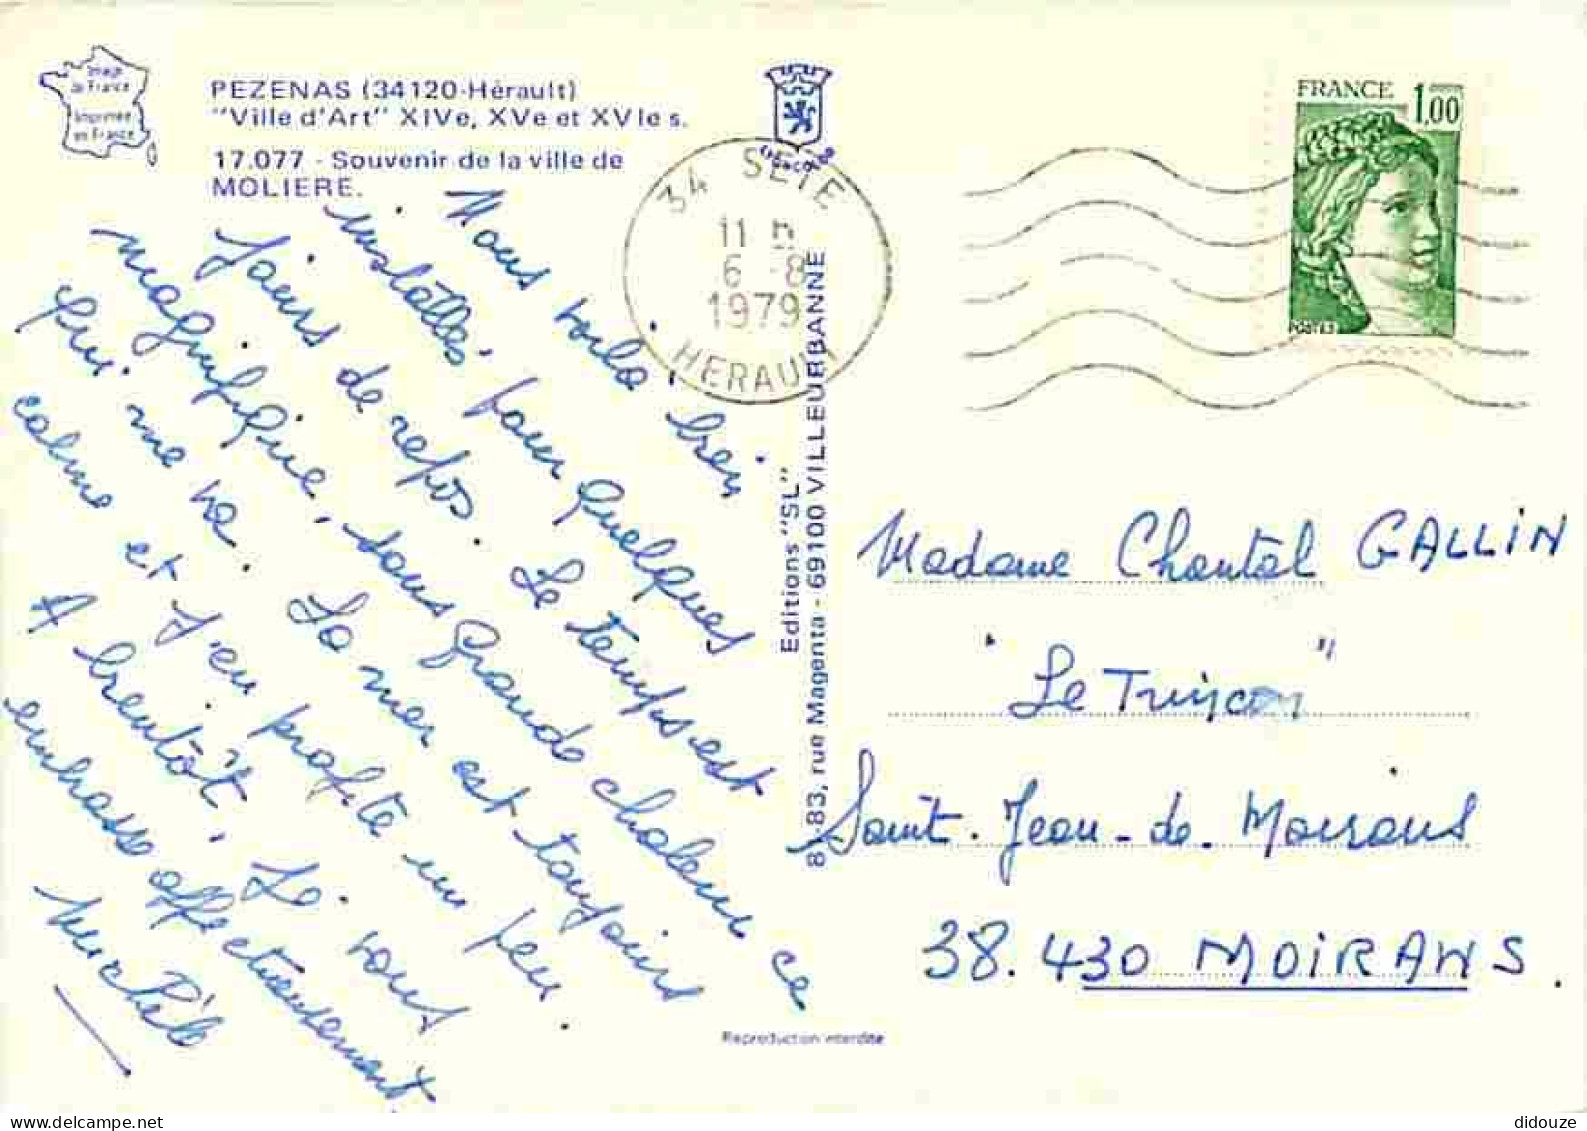 Image
de France
Imprimée
en France
PEZENAS (34120-Hérault)
"Ville d'Art" XIVe, XVe et XVIe s.
17.077 - Souvenir de la ville de
MOLIERE.
34 SETE
11 H
6 -8
1979
HERAULT
FRANCE 1,00
POSTES
Nous voilà bien
installés pour quelques
jours de repos. Le temps est
magnifique, sans grande chaleur ce
qui me va. La mer est toujours
calme et j'en profite un peu.
A bientôt, Je vous
embrasse affectueusement.
Michèle
Editions "SL"
81-83, rue Magenta - 69100 VILLEURBANNE
Madame Chantal GALLIN
"Le Trincon"
Saint-Jean-de-Moirans
38.430 MOIRANS.
Reproduction interdite
didouze